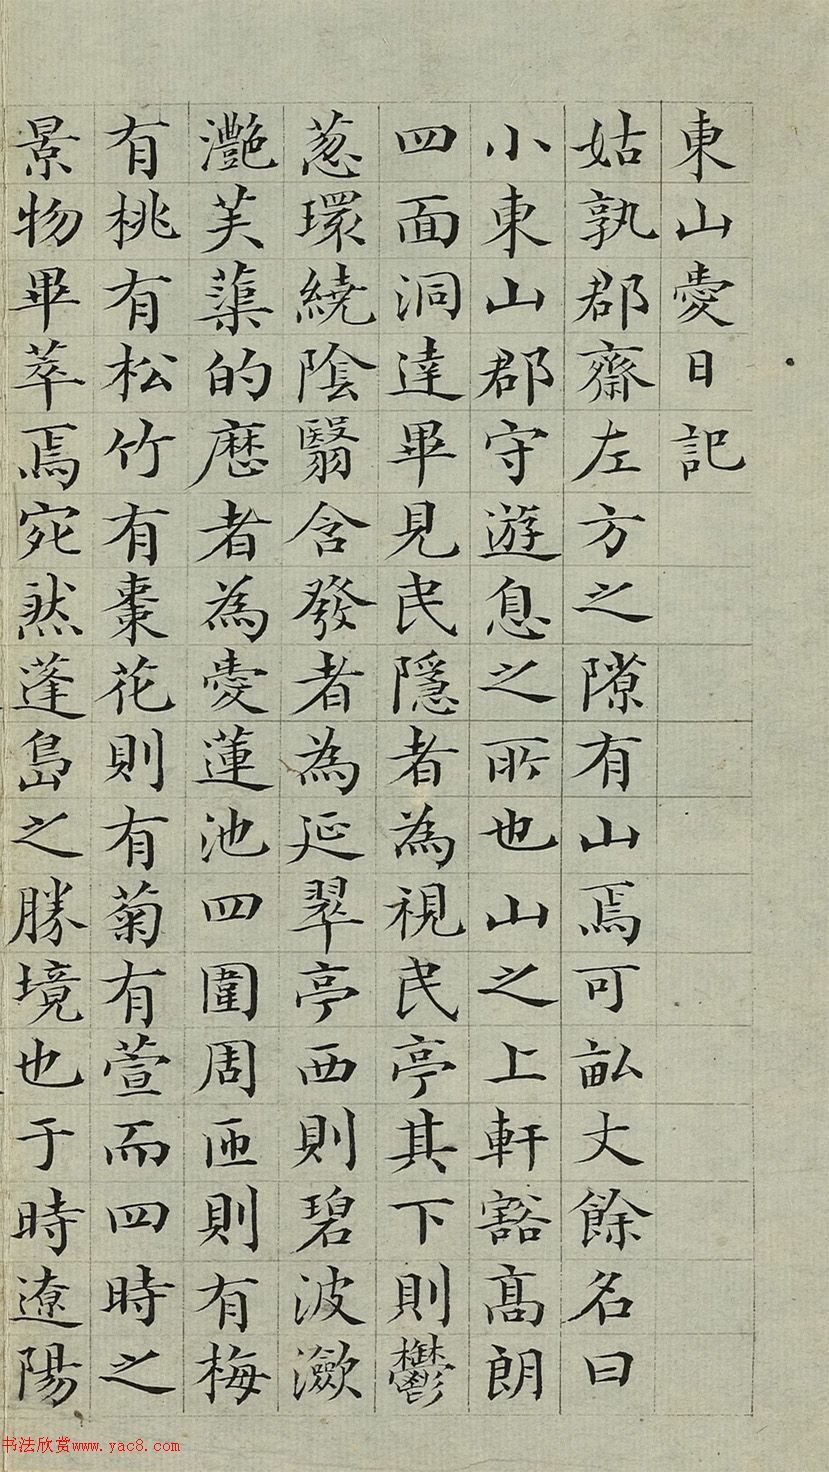 東山愛日記
姑孰郡齋左方之隙有山焉可畝丈餘名曰
小東山郡守遊息之所也山之上軒豁高朗
四面洞達畢見民隱者為視民亭其下則鬱
葱環繞陰翳含發者為延翠亭西則碧波瀲
灧芙蕖的歷者為愛蓮池四圍周匝則有梅
有桃有松竹有棗花則有菊有萱而四時之
景物畢萃焉宛然蓬島之勝境也于時遼陽
书法欣赏www.yac8.com